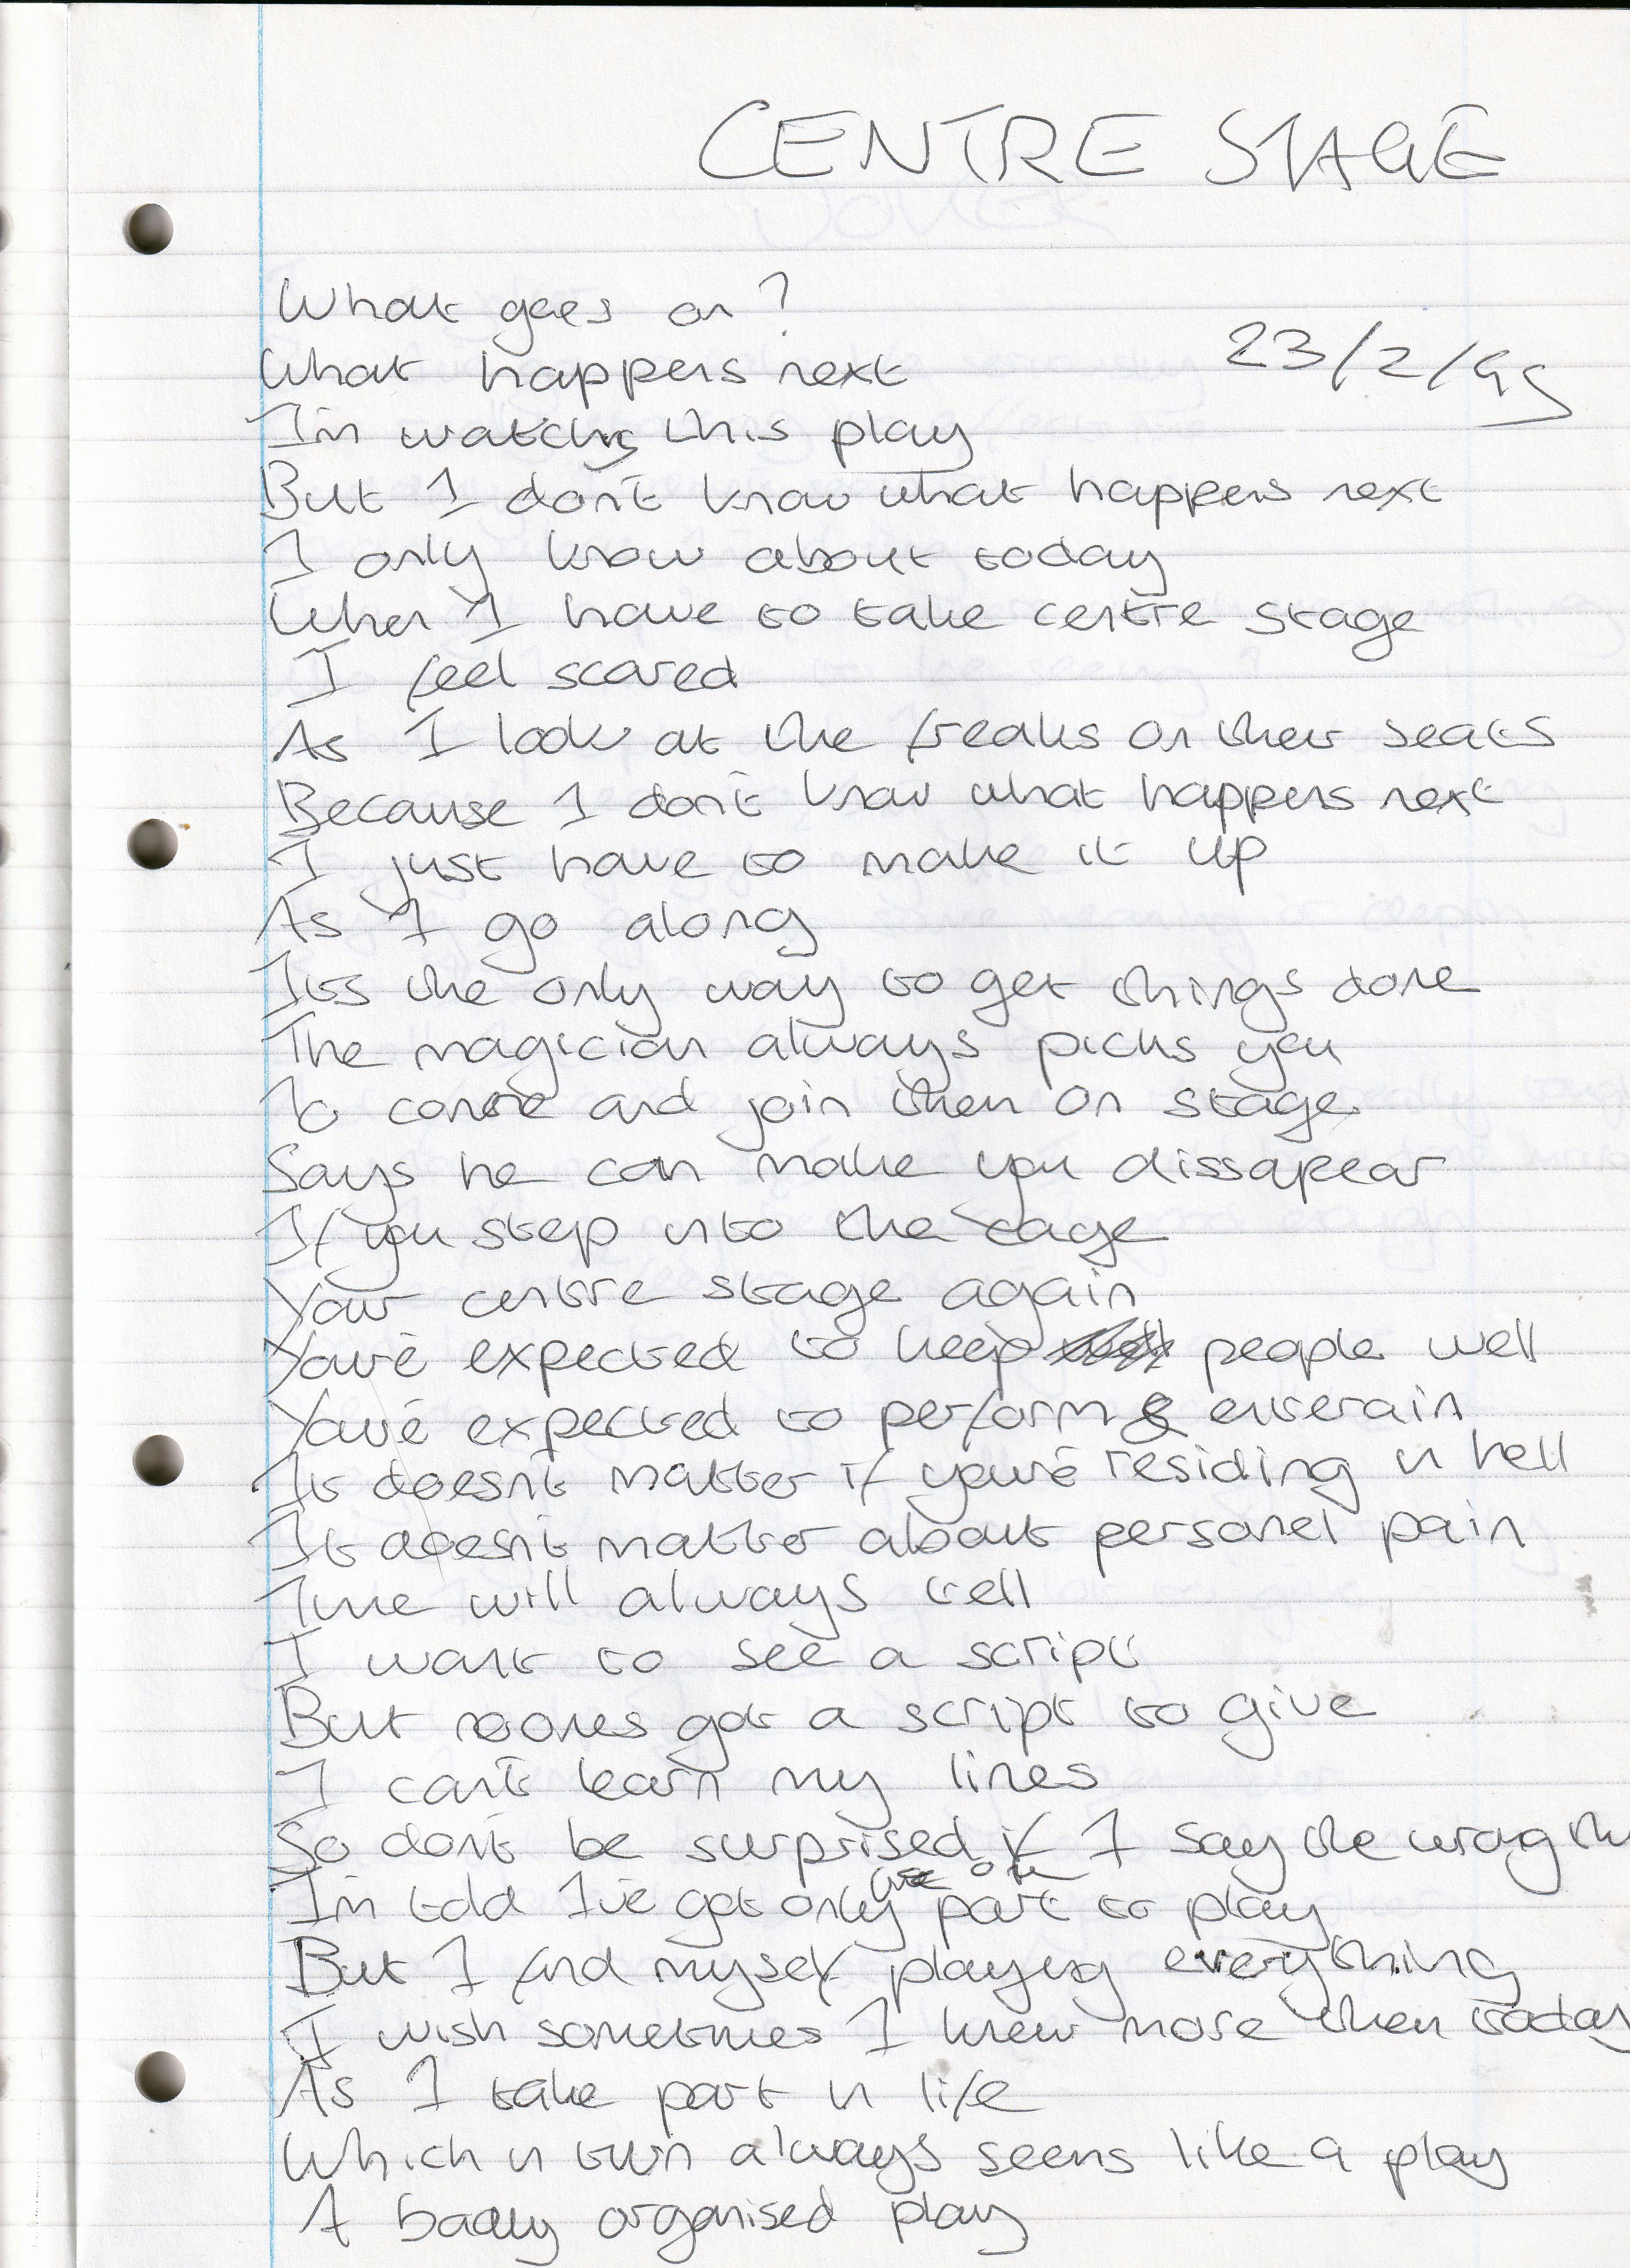 CENTRE STAGE
What goes on?
23/2/95
What happens next
I'm watching this play
But I don't know what happens next
I only know about today
When I have to take centre stage
I feel scared
As I look at the freaks on their seats
Because I don't know what happens next
I just have to make it up
As I go along
Its the only way to get things done
The magician always picks you
To come and join them on stage
Says he can make you dissapear
If you step into the cage
Your centre stage again
You're expected to keep people well
You're expected to perform & entertain
It doesn't matter if you're residing in hell
It doesn't matter about personel pain
Time will always tell
I want to see a script
But noones got a script to give
I can't learn my lines
So don't be surprised if I say the wrong
one
I'm told I've got only part to play
But I find myself playing everything
I wish sometimes I knew more then today
As I take part in life
Which in turn always seems like a play
A badly organised play